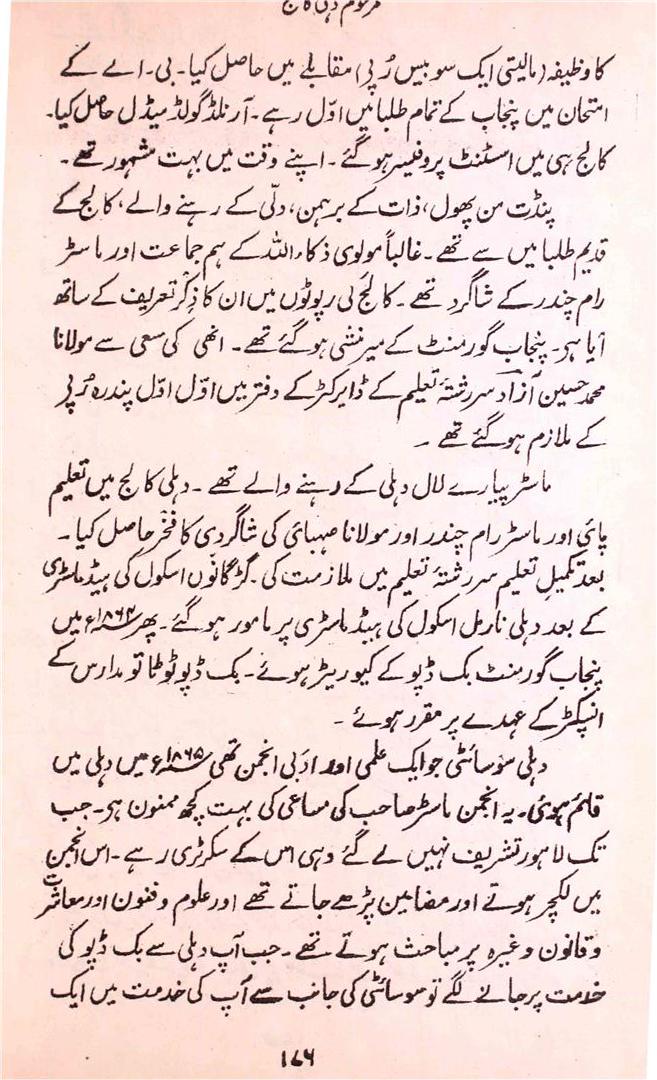 مرحوم دہلی کالج
کا وظیفہ (مالیتی ایک سو بیس رُپی) مقابلے میں حاصل کیا۔ بی۔ اے کے
امتحان میں پنجاب کے تمام طلبا میں اوّل رہے۔ آرنلڈ گولڈ میڈل حاصل کیا۔
کالج ہی میں اسسٹنٹ پروفیسر ہو گئے۔ اپنے وقت میں بہت مشہور تھے۔
پنڈت من پھول، ذات کے برہمن، دلّی کے رہنے والے، کالج کے
قدیم طلبا میں سے تھے۔ غالباً مولوی ذکاء اللہ کے ہم جماعت اور ماسٹر
رام چندر کے شاگرد تھے۔ کالج کی رپوٹوں میں ان کا ذکر تعریف کے ساتھ
آیا ہو۔ پنجاب گورمنٹ کے میر منشی ہو گئے تھے۔ انھی کی سعی سے مولانا
محمد حسین آزاد سررشتۂ تعلیم کے ڈایرکٹر کے دفتر میں اوّل اوّل پندرہ رُپی
کے ملازم ہو گئے تھے۔
ماسٹر پیارے لال دہلی کے رہنے والے تھے۔ دہلی کالج میں تعلیم
پائی اور ماسٹر رام چندر اور مولانا صہبائی کی شاگردی کا فخر حاصل کیا۔
بعد تکمیلِ تعلیم سررشتۂ تعلیم میں ملازمت کی۔ گڑگانوں اسکول کی ہیڈ ماسٹری
کے بعد دہلی نارمل اسکول کی ہیڈ ماسٹری پر مامور ہو گئے۔ پھر ۱۸۶۴ء میں
پنجاب گورمنٹ بک ڈپو کے کیوریٹر ہوئے۔ بک ڈپو ٹوٹا تو مدارس کے
انسپکٹر کے عہدے پر مقرر ہوئے۔
دہلی سوسائٹی جو ایک علمی اور ادبی انجمن تھی ۱۸۶۵ء میں دہلی میں
قائم ہوئی۔ یہ انجمن ماسٹر صاحب کی مساعی کی بہت کچھ ممنون ہو۔ جب
تک لاہور تشریف نہیں لے گئے وہی اس کے سکرٹری رہے۔ اس انجمن
میں لکچر ہوتے اور مضامین پڑھے جاتے تھے اور علوم و فنون اور معاشرت
و قانون وغیرہ پر مباحث ہوتے تھے۔ جب آپ دہلی سے بک ڈپو کی
خدمت پر جانے لگے تو سوسائٹی کی جانب سے آپ کی خدمت میں ایک
۱۷۶